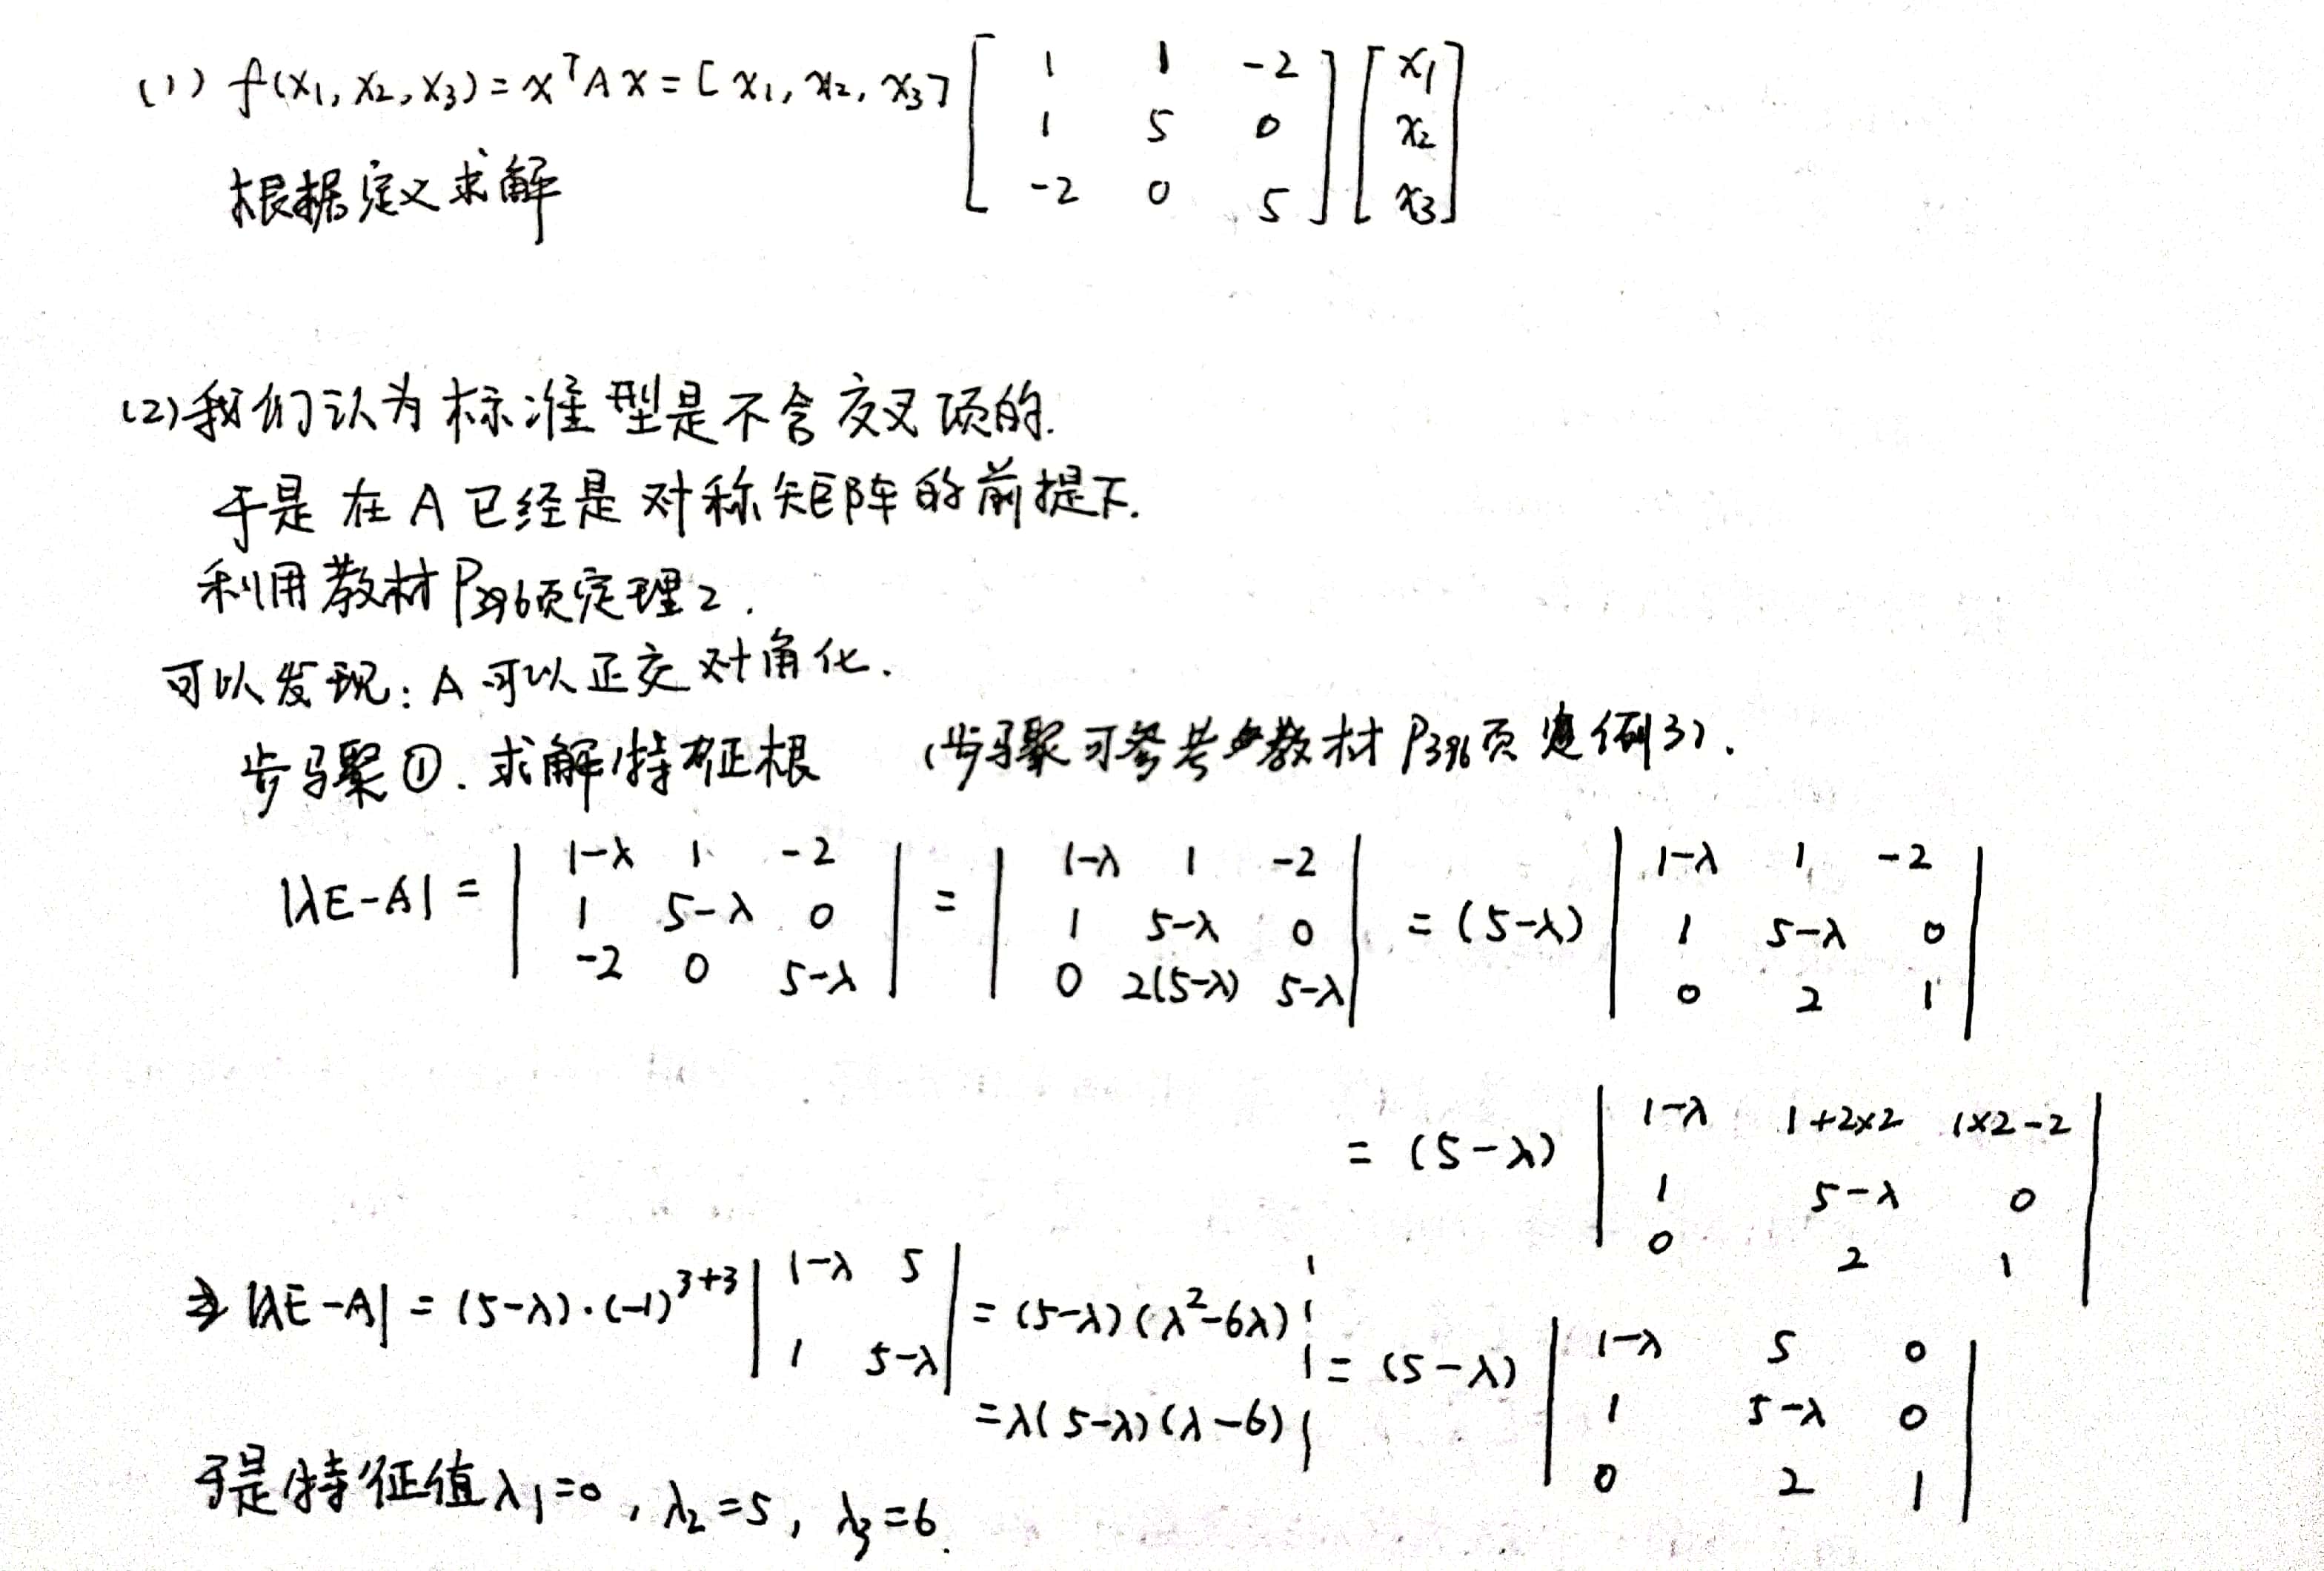 (1) f(x₁, x₂, x₃) = xᵀAx = [x₁, x₂, x₃] [1 1 -2; 1 5 0; -2 0 5] [x₁; x₂; x₃]
根据定义求解
(2) 我们认为标准型是不含交叉项的.
于是在A已经是对称矩阵的前提下.
利用教材P396页定理2.
可以发现: A可以正交对角化.
步骤①. 求解特征根 (步骤可参考教材P396页例3).
|λE-A| = |1-λ 1 -2; 1 5-λ 0; -2 0 5-λ| = |1-λ 1 -2; 1 5-λ 0; 0 2(5-λ) 5-λ| = (5-λ) |1-λ 1 -2; 1 5-λ 0; 0 2 1|
= (5-λ) |1-λ 1+2×2 1×2-2; 1 5-λ 0; 0 2 1|
= (5-λ) |1-λ 5 0; 1 5-λ 0; 0 2 1|
⇒ |λE-A| = (5-λ)·(-1)³⁺³ |1-λ 5; 1 5-λ| = (5-λ)(λ²-6λ)
= λ(5-λ)(λ-6)
于是特征值λ₁=0, λ₂=5, λ₃=6.